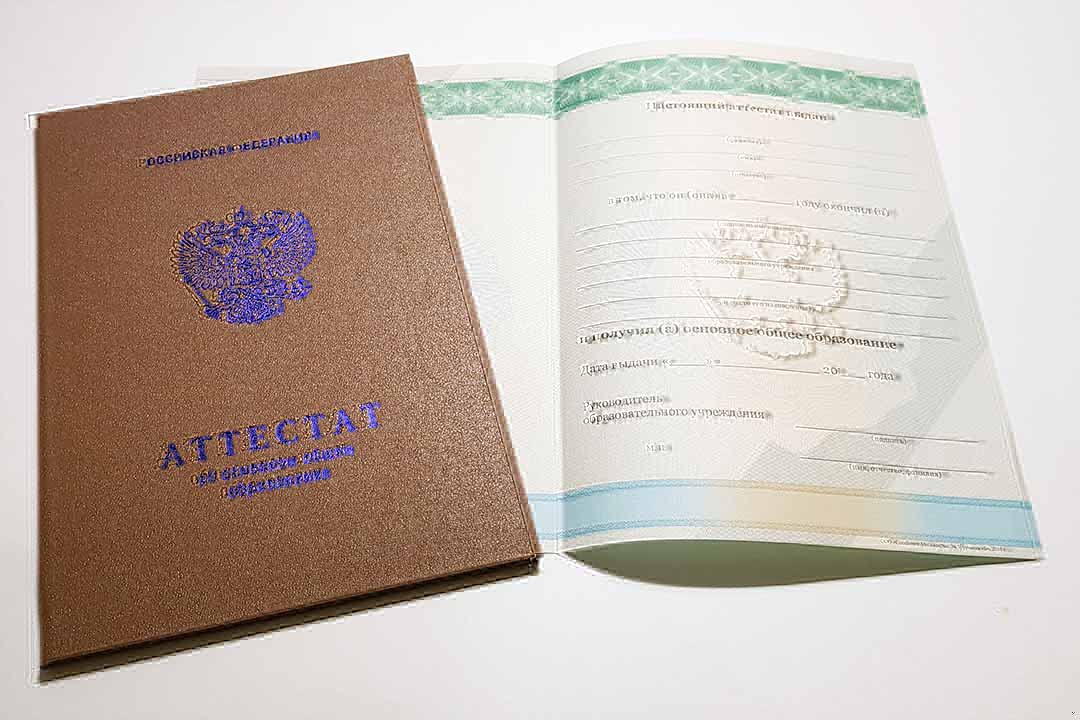 РОССИЙСКАЯ ФЕДЕРАЦИЯ
АТТЕСТАТ
ОБ ОСНОВНОМ ОБЩЕМ
ОБРАЗОВАНИИ
Настоящий аттестат выдан
(фамилия)
(имя)
(отчество)
в том, что он (она) в году окончил (а)
образовательного учреждения
и получил (а) основное общее образование
Дата выдачи « » 20 года
Руководитель
образовательного учреждения
(подпись)
(имя, отчество, фамилия)
М.П.